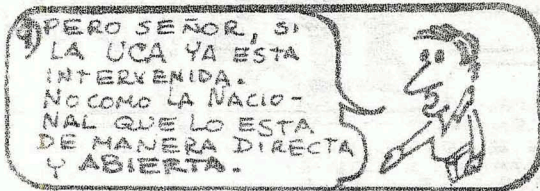 9) PERO SEÑOR, SI
LA UCA YA ESTA
INTERVENIDA.
NO COMO LA NACIO-
NAL QUE LO ESTA
DE MANERA DIRECTA
Y ABIERTA.